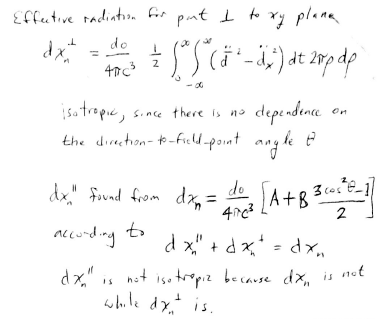 Effective radiation for part ⊥ to xy plane
dx_n^⊥ = do/4πc³ 1/2 ∫_0^∞ ∫_{-∞}^∞ (d̈² - d̈_x²) dt 2πρ dρ
isotropic, since there is no dependence on
the direction-to-field-point angle θ
dx_n^" found from dx_n = do/4πc³ [A+B (3cos²θ-1)/2]
according to dx_n^" + dx_n^⊥ = dx_n
dx_n^" is not isotropic because dx_n is not
while dx_n^⊥ is.